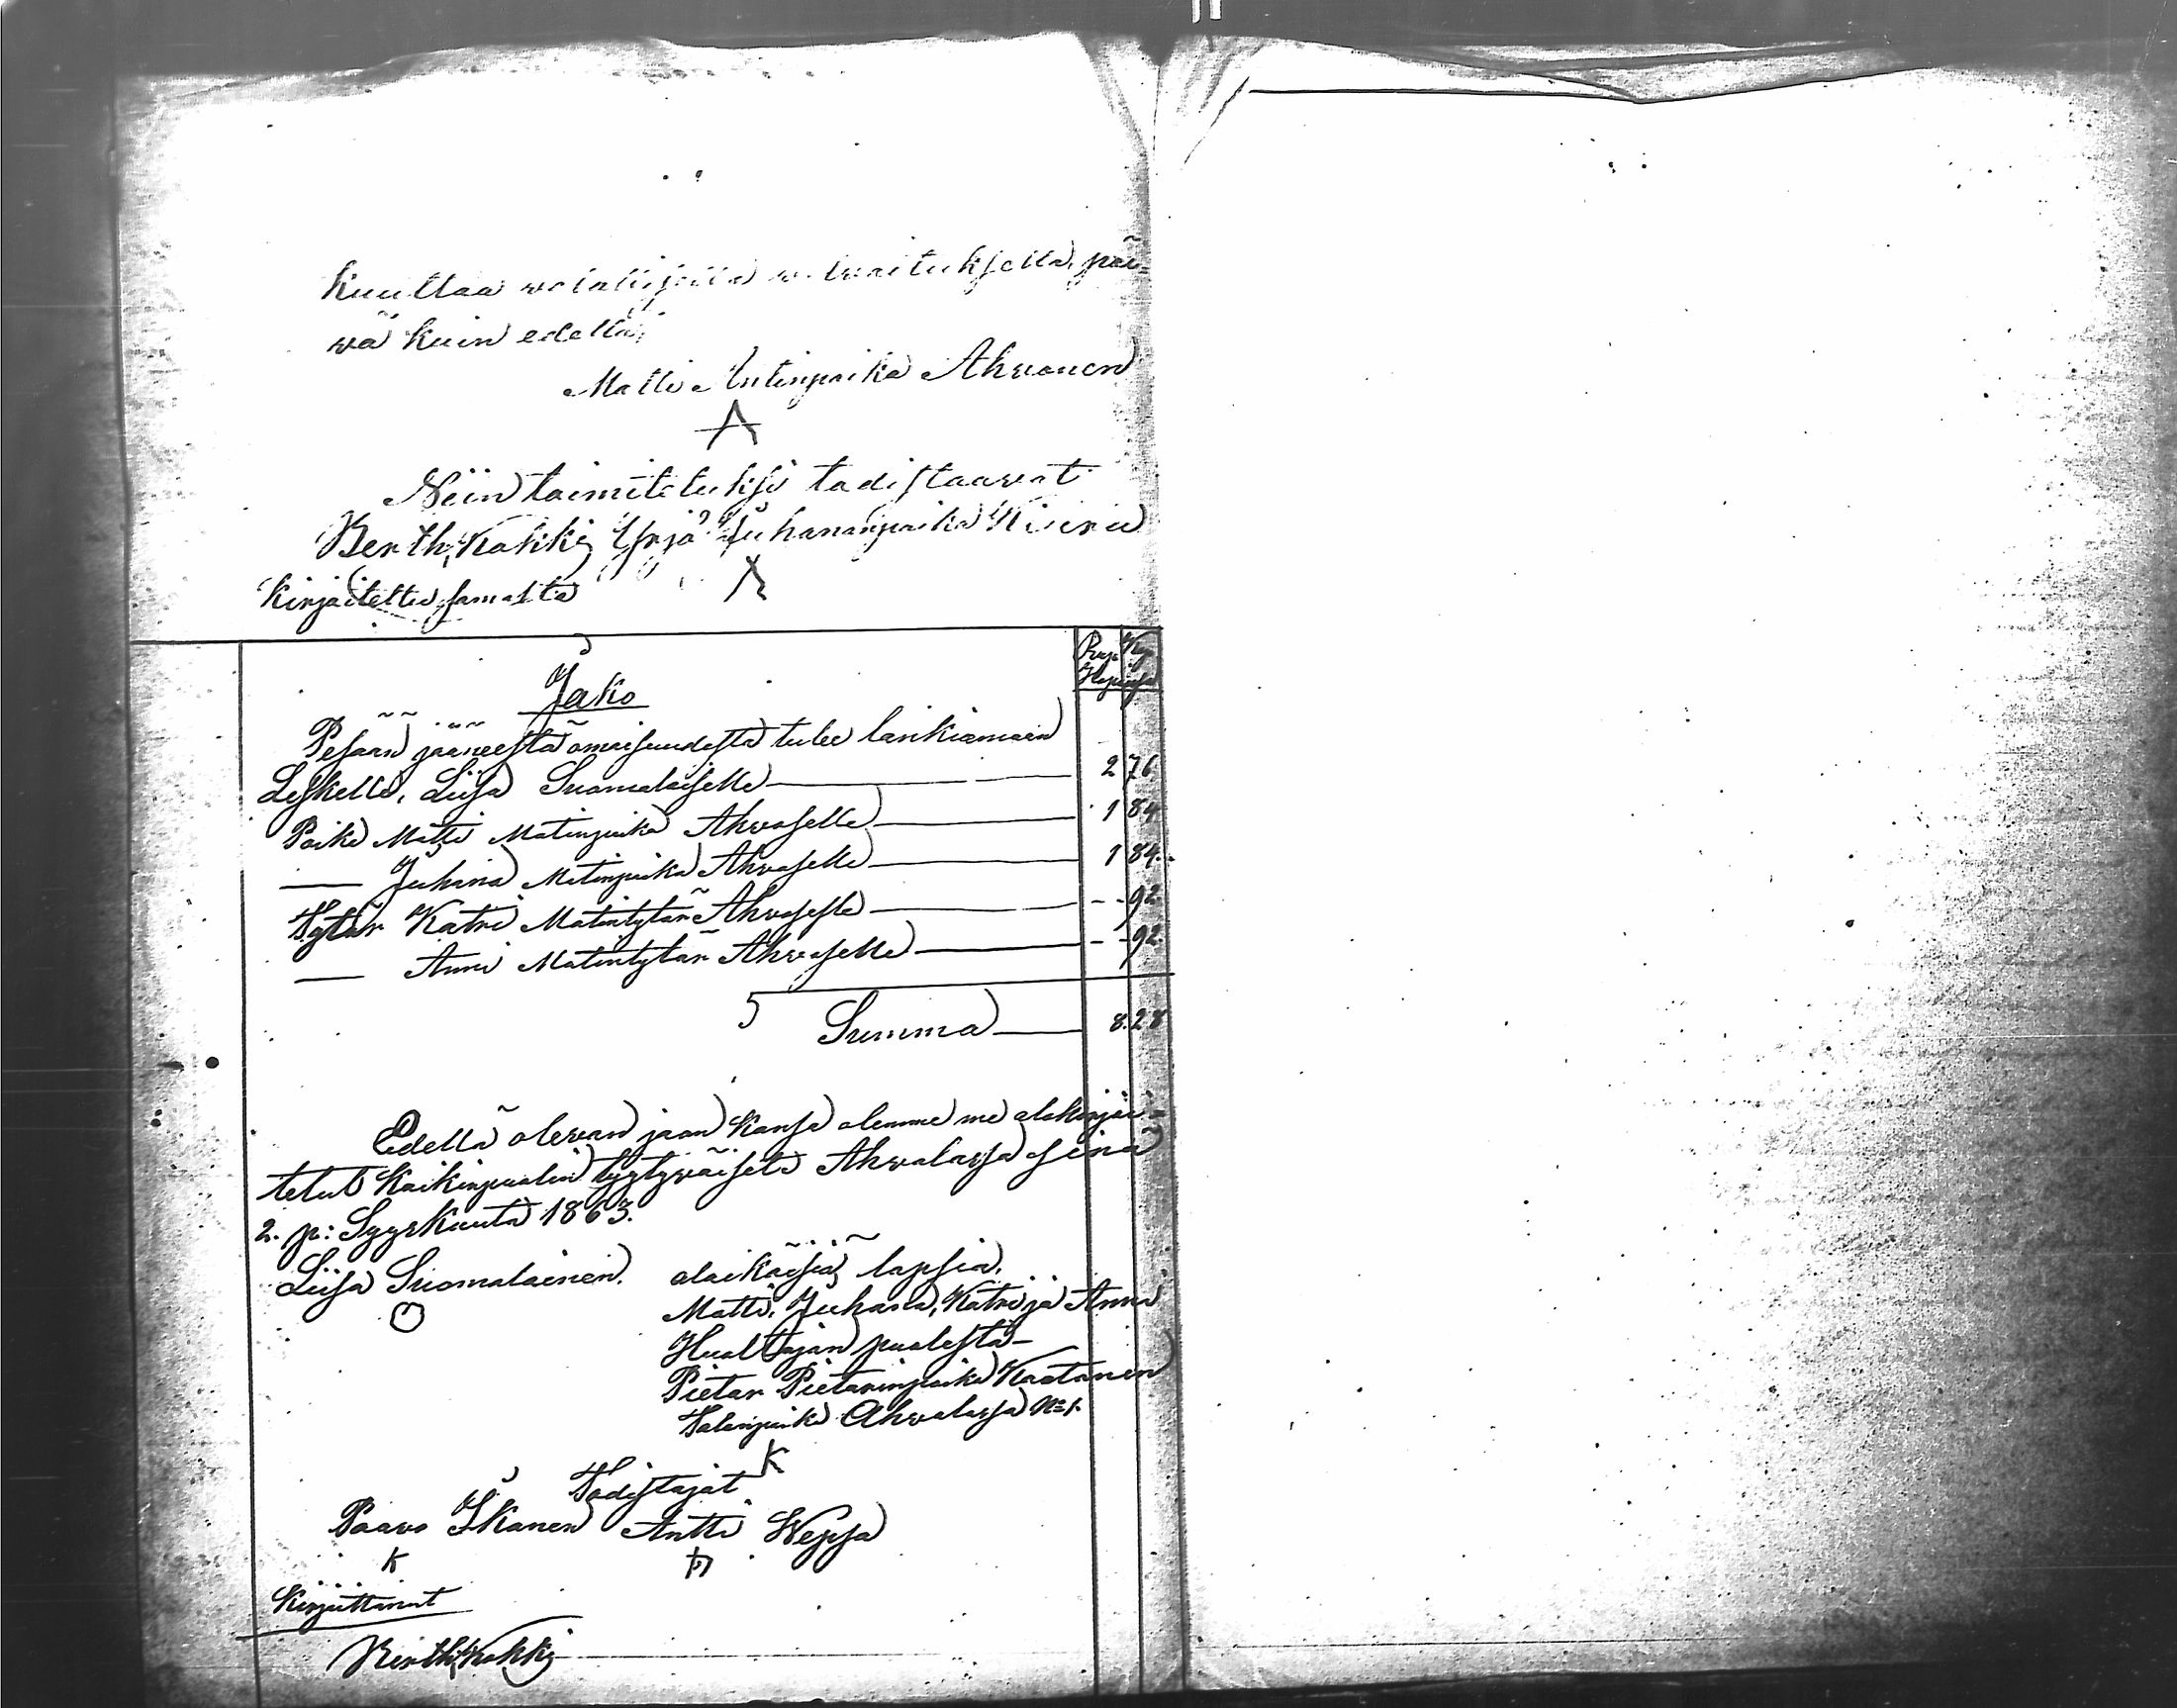 kuuttaa päi-
wä kuin edellä,
Matti Antinpoika Ahwonen
A
Niin toimitetuksi todistaawat
Berth. Kokki Yrjö Juhananpoika Kiiru
Kirjoitettu samasta
Rup. Kop.
Hopiasa
Jako
Pesään jääneestä omaisuudesta tulee lankiamaan
Leskelle, Liisa Suomalaiselle 2 76.
Poika Matti Matinpoika Ahwoselle 1 84
— Juhana Matinpoika Ahwoselle 1 84.
Tytär Katri Matintytär Ahwoselle - - 92.
— Anni Matintytär Ahwoselle - - 92.
Summa 8. 28
Edellä olewan jaon kansa olemme me alakirjoi-
tetut kaikinpuolin tyytywäiset. Ahwolassa sinä
2. p: Syyskuuta 1863.
Liisa Suomalainen. alaikäisiä lapsia,
Matti, Juhana, Katri ja Anni
Huoltajan puolesta
Pietar Pietarinpoika Kaatanen
Talonpoika Ahwolassa No 1.
K
Todistajat
Paavo Ikanen Antti Wepsä
K
Kirjoittanut
Berth. Kokki